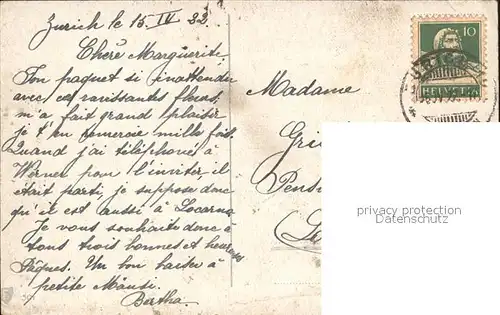 Zurich le 15. IV 22.
Chère Marguerite,
Ton paquet si inattendu
avec ces ravissantes fleurs
m'a fait grand plaisir
je t'en remercie mille fois.
Quand j'ai téléphoné à
Werner pour l'inviter, il
était parti, je suppose donc
qu'il est aussi à Locarno
Je vous souhaite donc à
tous trois bonnes et heureuses
Pâques. Un bon baiser à
petite Mausi.
Bertha.
Madame
10
HELVETIA
privacy protection
Datenschutz